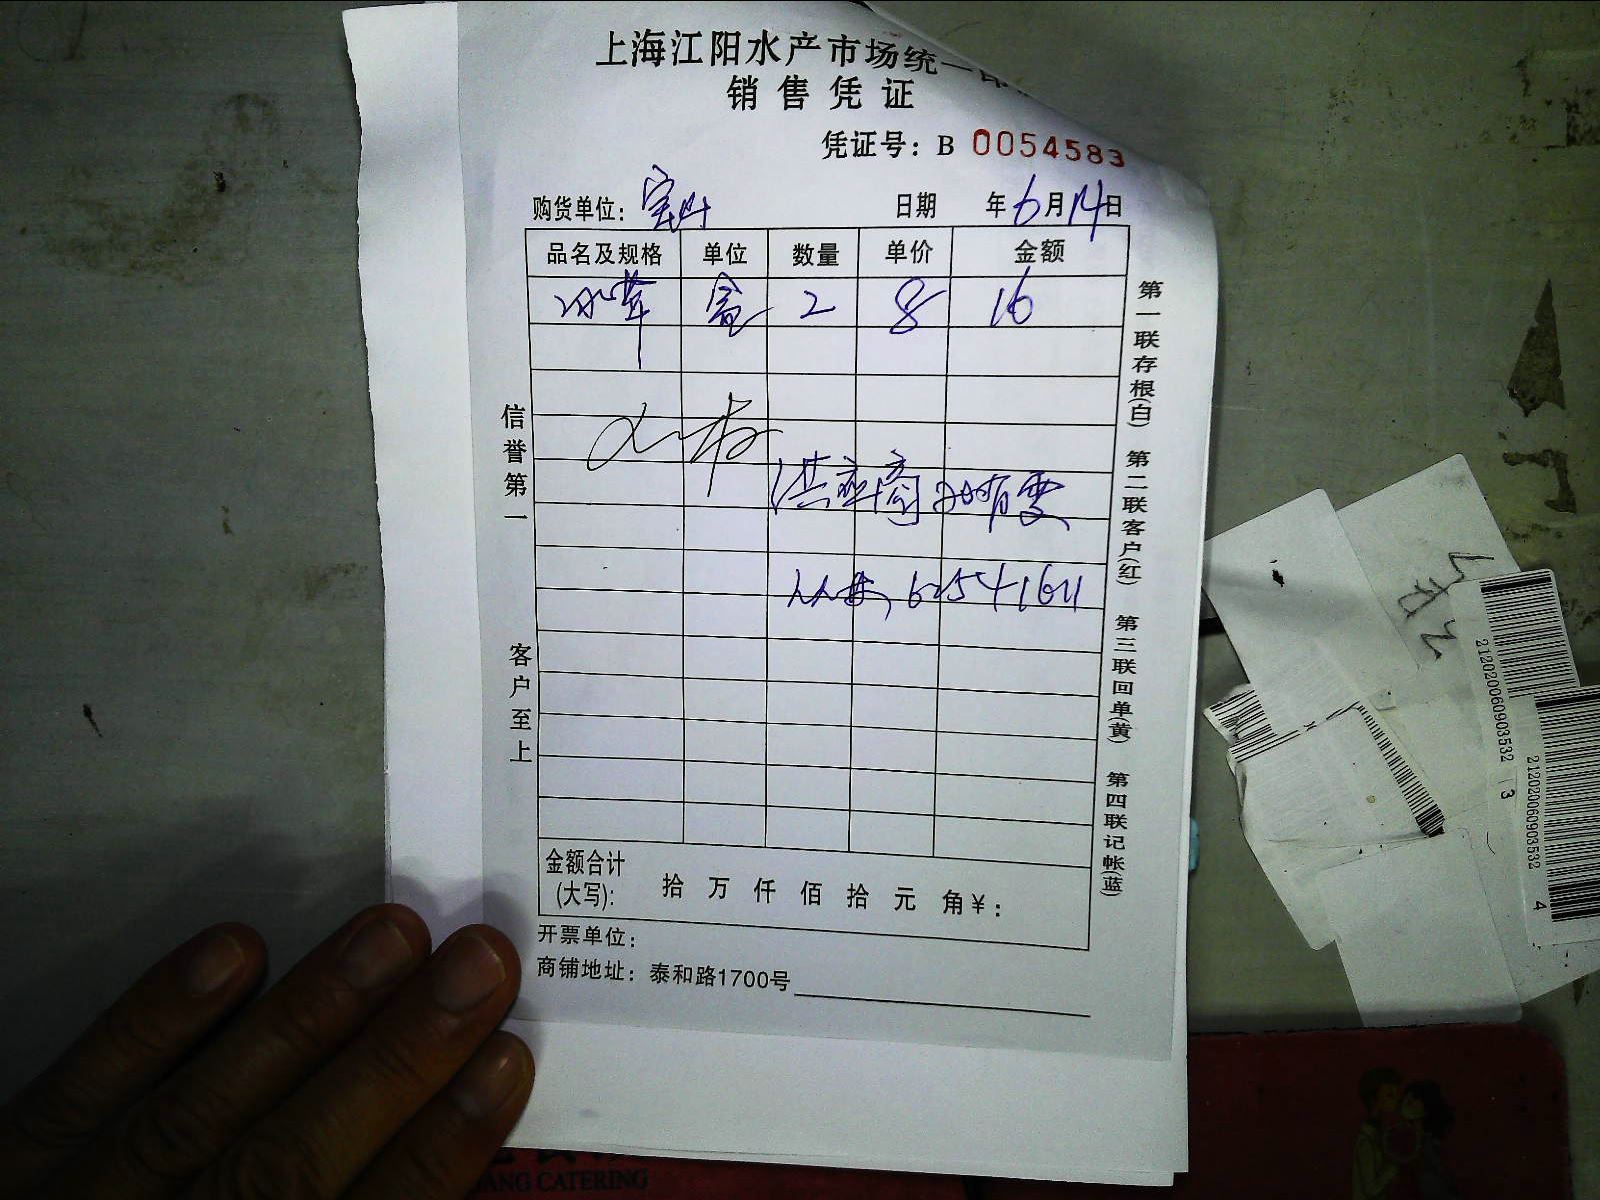 上海江阳水产市场统一印
销售凭证
凭证号：B 0054583
购货单位：宝山 日期 年6月14日
品名及规格 单位 数量 单价 金额
冰草 盒 2 8 16
信誉第一
客户至上
第一联存根(白) 第二联客户(红) 第三联回单(黄) 第四联记帐(蓝)
62541611
金额合计(大写)： 拾 万 仟 佰 拾 元 角¥：
开票单位：
商铺地址：泰和路1700号
2120200609035323
2120200609035324
CATERING